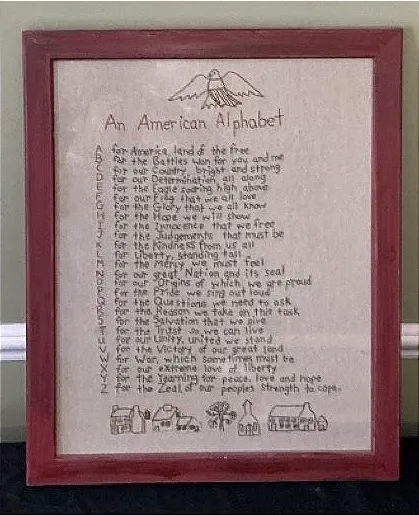 An American Alphabet
A for America, land of the free
B for the Battles won for you and me
C for our Country, bright and strong
D for our Determination, all along
E for the Eagle soaring high above
F for our Flag that we all love
G for the Glory that we all know
H for the Hope we will show
I for the Innocence that we free
J for the Judgements that must be
K for the Kindness from us all
L for Liberty, standing tall
M for the Mercy we must feel
N for our great Nation and its seal
O for our "Origins of which we are proud
P for the Pride we sing out loud
Q for the Questions we need to ask
R for the Reason we take on this task
S for the Salvation that we give
T for the Trust so we can live
U for our Unity, united we stand
V for the Victory of our great land
W for War, which sometimes must be
X for our eXtreme love of liberty
Y for the Yearning for peace, love and hope
Z for the Zeal of our peoples strength to cope.